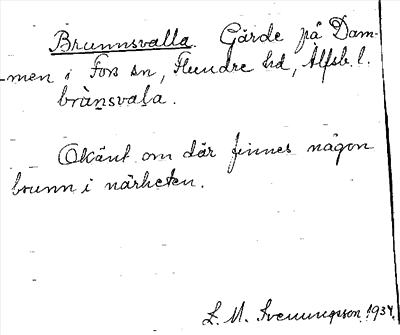 Brunnsvalla. Gärde på Dam-
men i Fors sn, Flundre hd, Älfsb. l.
brànsvala.
Okänt om där finnes någon
brunn i närheten.
L. M. Svenungsson. 1934.